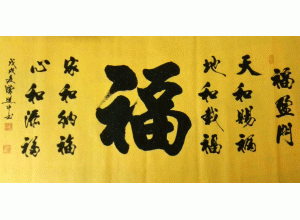 福盈門
天和賜福
地和載福
福
家和納福
心和添福
戊戌